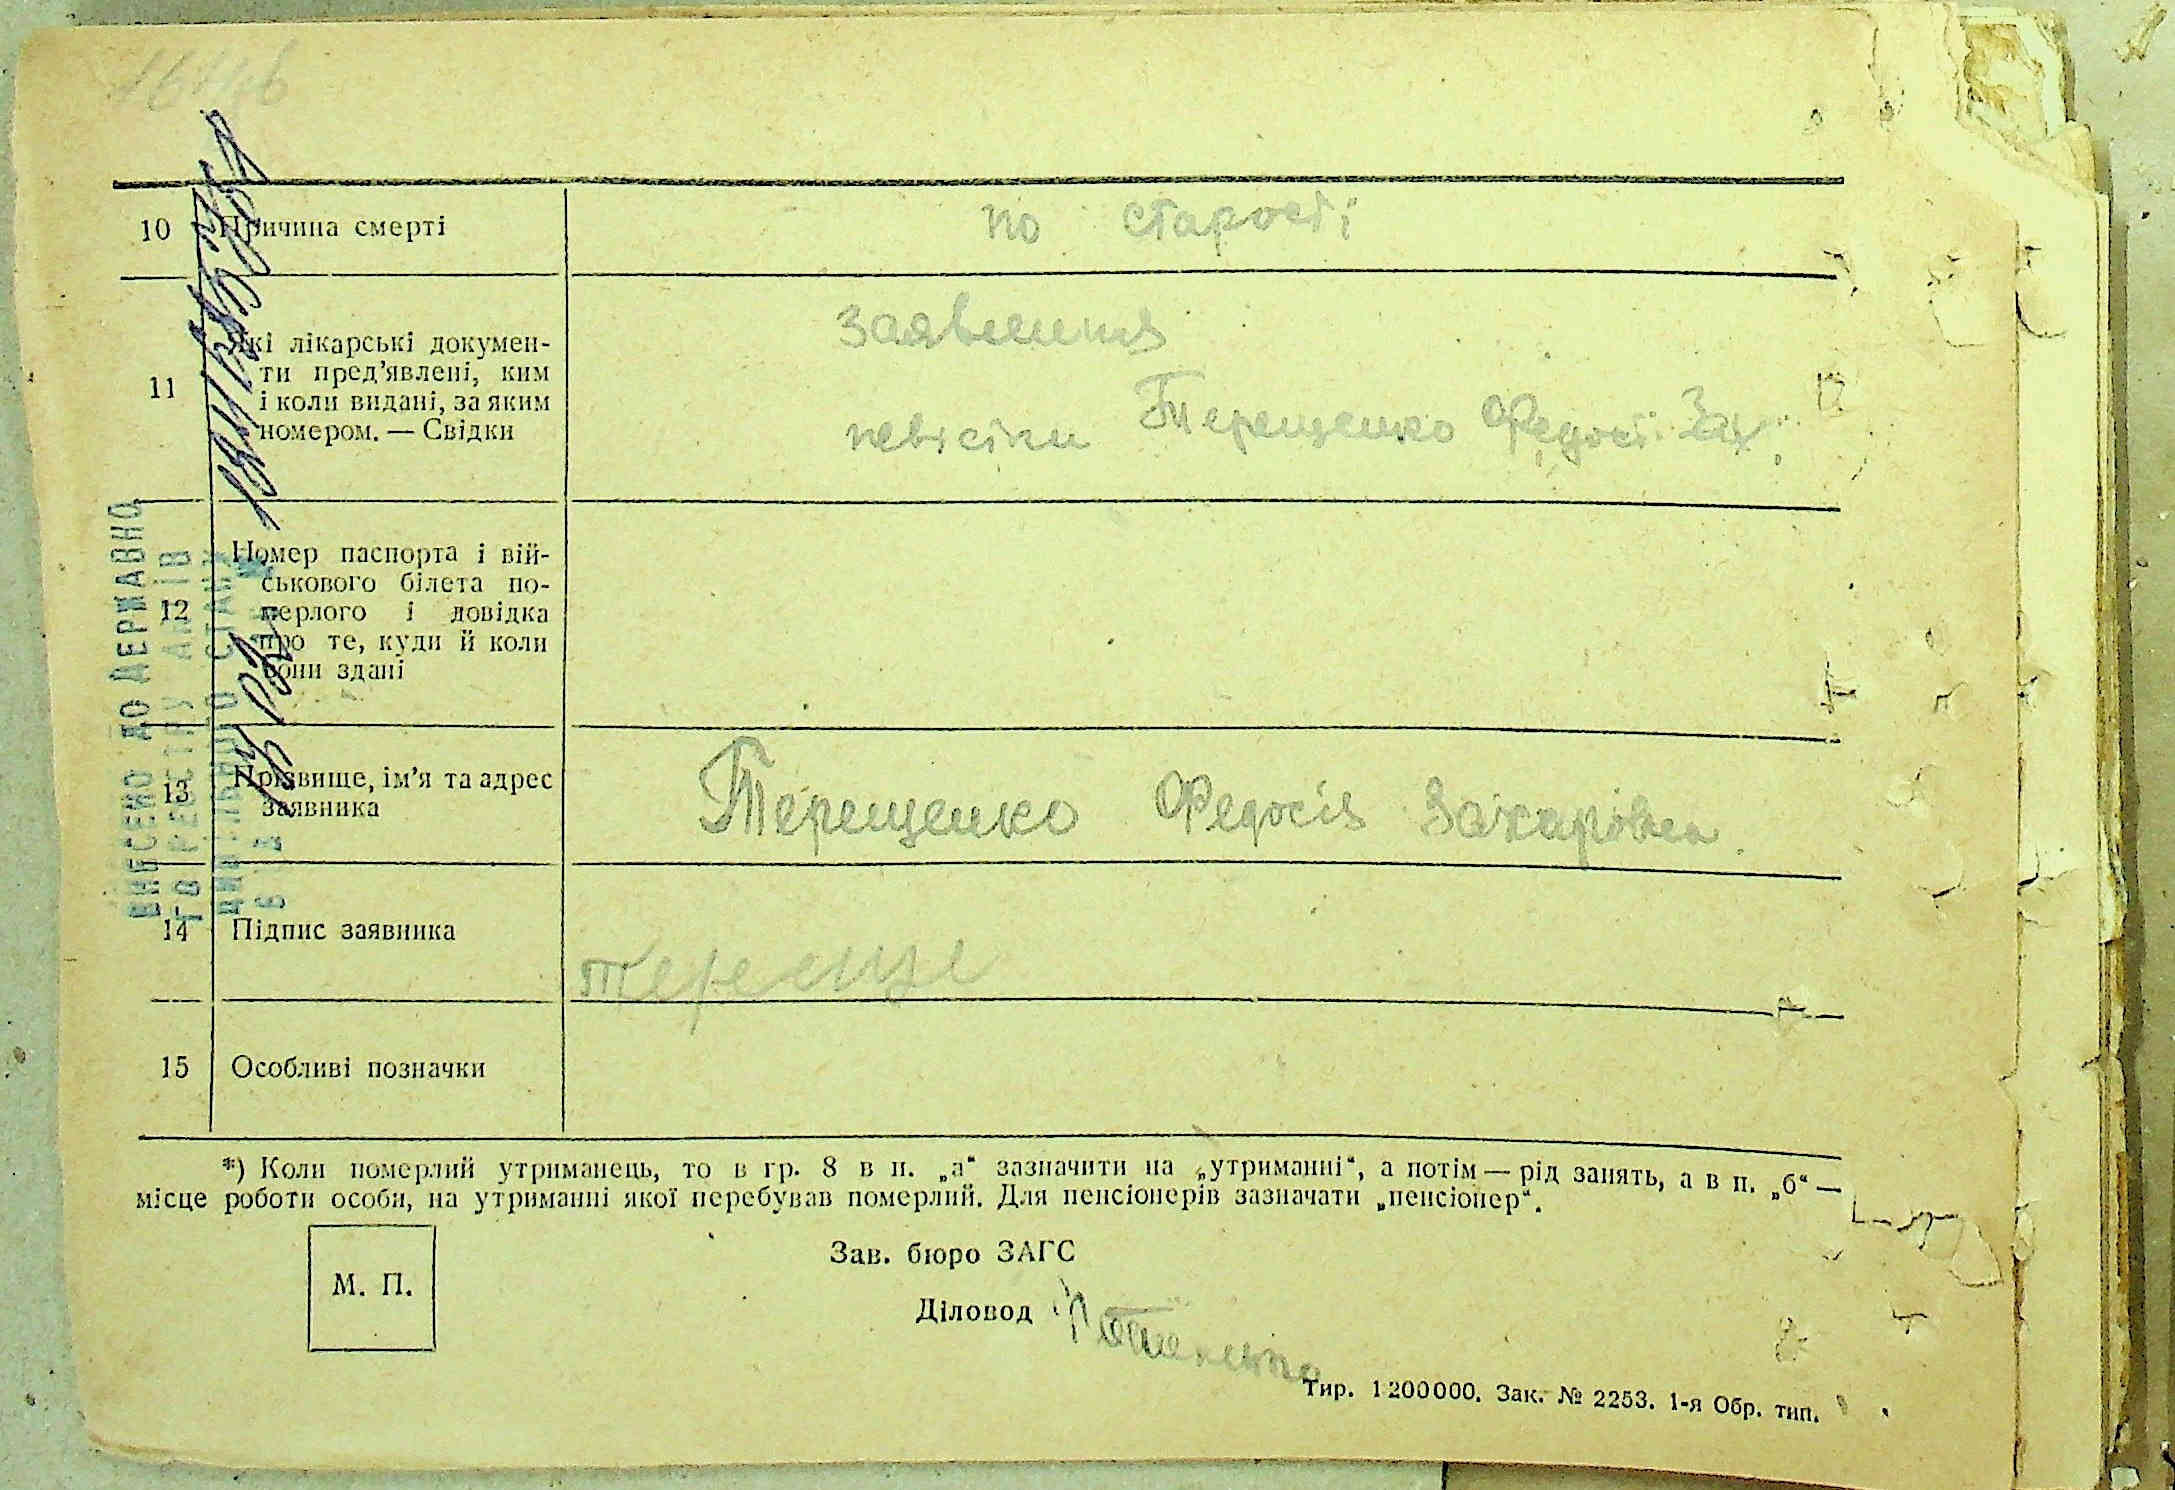 10 Причина смерті
по старості
11 Які лікарські докумен-
ти пред’явлені, ким
і коли видані, за яким
номером. — Свідки
заявлення
невістки Терещенко Федосі Зах.
12 Номер паспорта і вій-
ськового білета по-
мерлого і довідка
про те, куди й коли
вони здані
13 Прізвище, ім’я та адрес
заявника
Терещенко Федосія Захарівна
14 Підпис заявника
Тереще
15 Особливі позначки
*) Коли померлий утриманець, то в гр. 8 в п. „а“ зазначити на „утриманні“, а потім — рід занять, а в п. „б“ —
місце роботи особи, на утриманні якої перебував померлий. Для пенсіонерів зазначати „пенсіонер“.
М. П.
Зав. бюро ЗАГС
Діловод
Тир. 1200000. Зак. № 2253. 1-я Обр. тип.
ВНЕСЕНО ДО ДЕРЖАВНО
ГО РЕЄСТРУ АКТІВ
ЦИВІЛЬНОГО СТАНУ